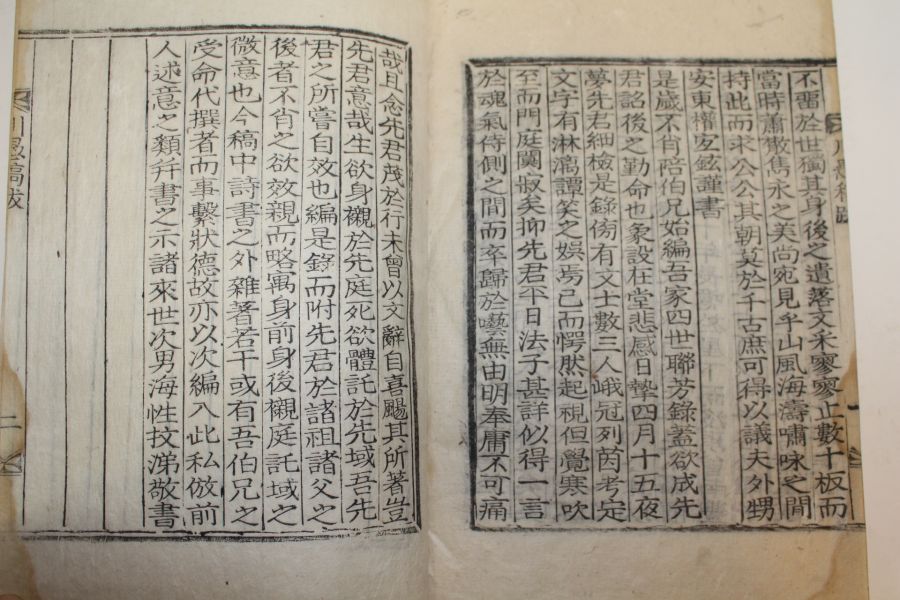 不畱於世獨其身後之遺落文朱寥寥止數十板而
當時蕭散雋永之美尚宛見乎山風海濤嘯咏之間
持此而求公公其朝莫於千古庶可得以議夫外甥
安東權宓鉉謹書
是歲不肖陪伯兄始編吾家四世聯芳錄蓋欲成先
君詔後之勤命也象設在堂悲感日摯四月十五夜
夢先君細檢是錄傍有文士數三人峨冠列茵考定
文字有淋漓譚笑之娛焉已而愕然起視但覺寒吹
至而門庭闃寂矣抑先君平日法子甚詳似得一言
於魂氣侍側之間而卒歸於囈無由明奉庸不可痛
哉且念先君茂於行未曾以文辭自喜颺其所著豈
先君意哉生欲身襯於先庭死欲體託於先域吾先
君之所嘗自效也編是錄而附先君於諸祖諸父之
後者不肖之欲效親而略寓身前身後襯庭託域之
微意也今稿中詩書之外雜著若干或有吾伯兄之
受命代撰者而事繫狀德故亦以次編入此私倣前
人述意之類幷書之示諸來世次男海性抆涕敬書
川愚稿跋
二